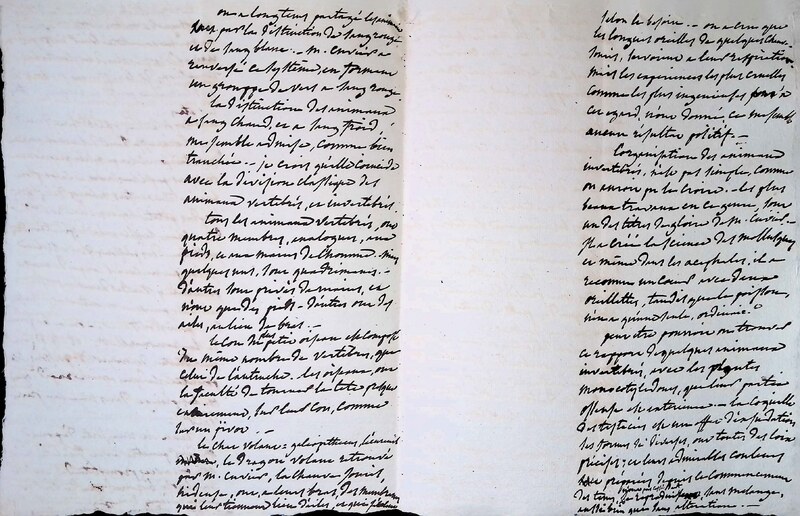 on a longtems partagé les animaux
par la distinction de sang rouge
et de sang blanc. - m. cuvier a
renversé ce système, en formant
un grouppe de vers a sang rouge.
la distinction des animaux
a sang chaud, et a sang froid
me semble admise, comme bien
tranchée. - je crois qu'elle coincide
avec la division classique des
animaux vertebrés, et invertebrés.
tous les animaux vertebrés, ont
quatre membres, analogues, aux
pieds, et aux mains de l'homme. mais
quelques uns, sont quadrumanes. -
d'autres sont privés de mains, et
n'ont que des pieds - d'autres ont des
ailes, au lieu de bras. -
le cou du petit oiseau est composé
du même nombre de vertebres, que
celui de l'autruche. les oiseaux, ont
la faculté de tourner la tete presque
entierement, sur leur cou, comme
sur un pivot. -
le chat volant = galeopitheque, l'ecureuil
le dragon volant retrouvé
par m. cuvier, la chauve souris,
hideuse, ont a leurs bras, des membranes
qui leur tiennent lieu d'ailes, et qui
selon le besoin. - on a cru que
les longues oreilles de quelques chauve
souris, servoient a leur respiration
mais les experiences les plus cruelles
comme les plus ingenieuses
cet egard, n'ont donné, ce me semble
aucun resultat positif. -
l'organisation des animaux
invertebrés, n'est pas simple, comme
on auroit pu le croire. - les plus
beaux travaux en ce genre, sont
un des titres de gloire de m. cuvier -
il a créé la science des mollusques
et même dans les acephales, il a
reconnu un coeur avec deux
oreillettes, tandis que les poissons,
n'en a qu'une seule, ordinair.t
peut etre pourroit on trouver
ce rapport de quelques animaux
invertebrés, avec les plantes
monocotyledons, que leur partie
osseuse est exterieure. - la coquille
des testacées est un effet d'exsudation
les formes si diverses, ont toutes des loix
precises; et leurs admirables couleurs
preparées depuis le commencement
des tems, sans melange,
aussi bien que sans alteration. -